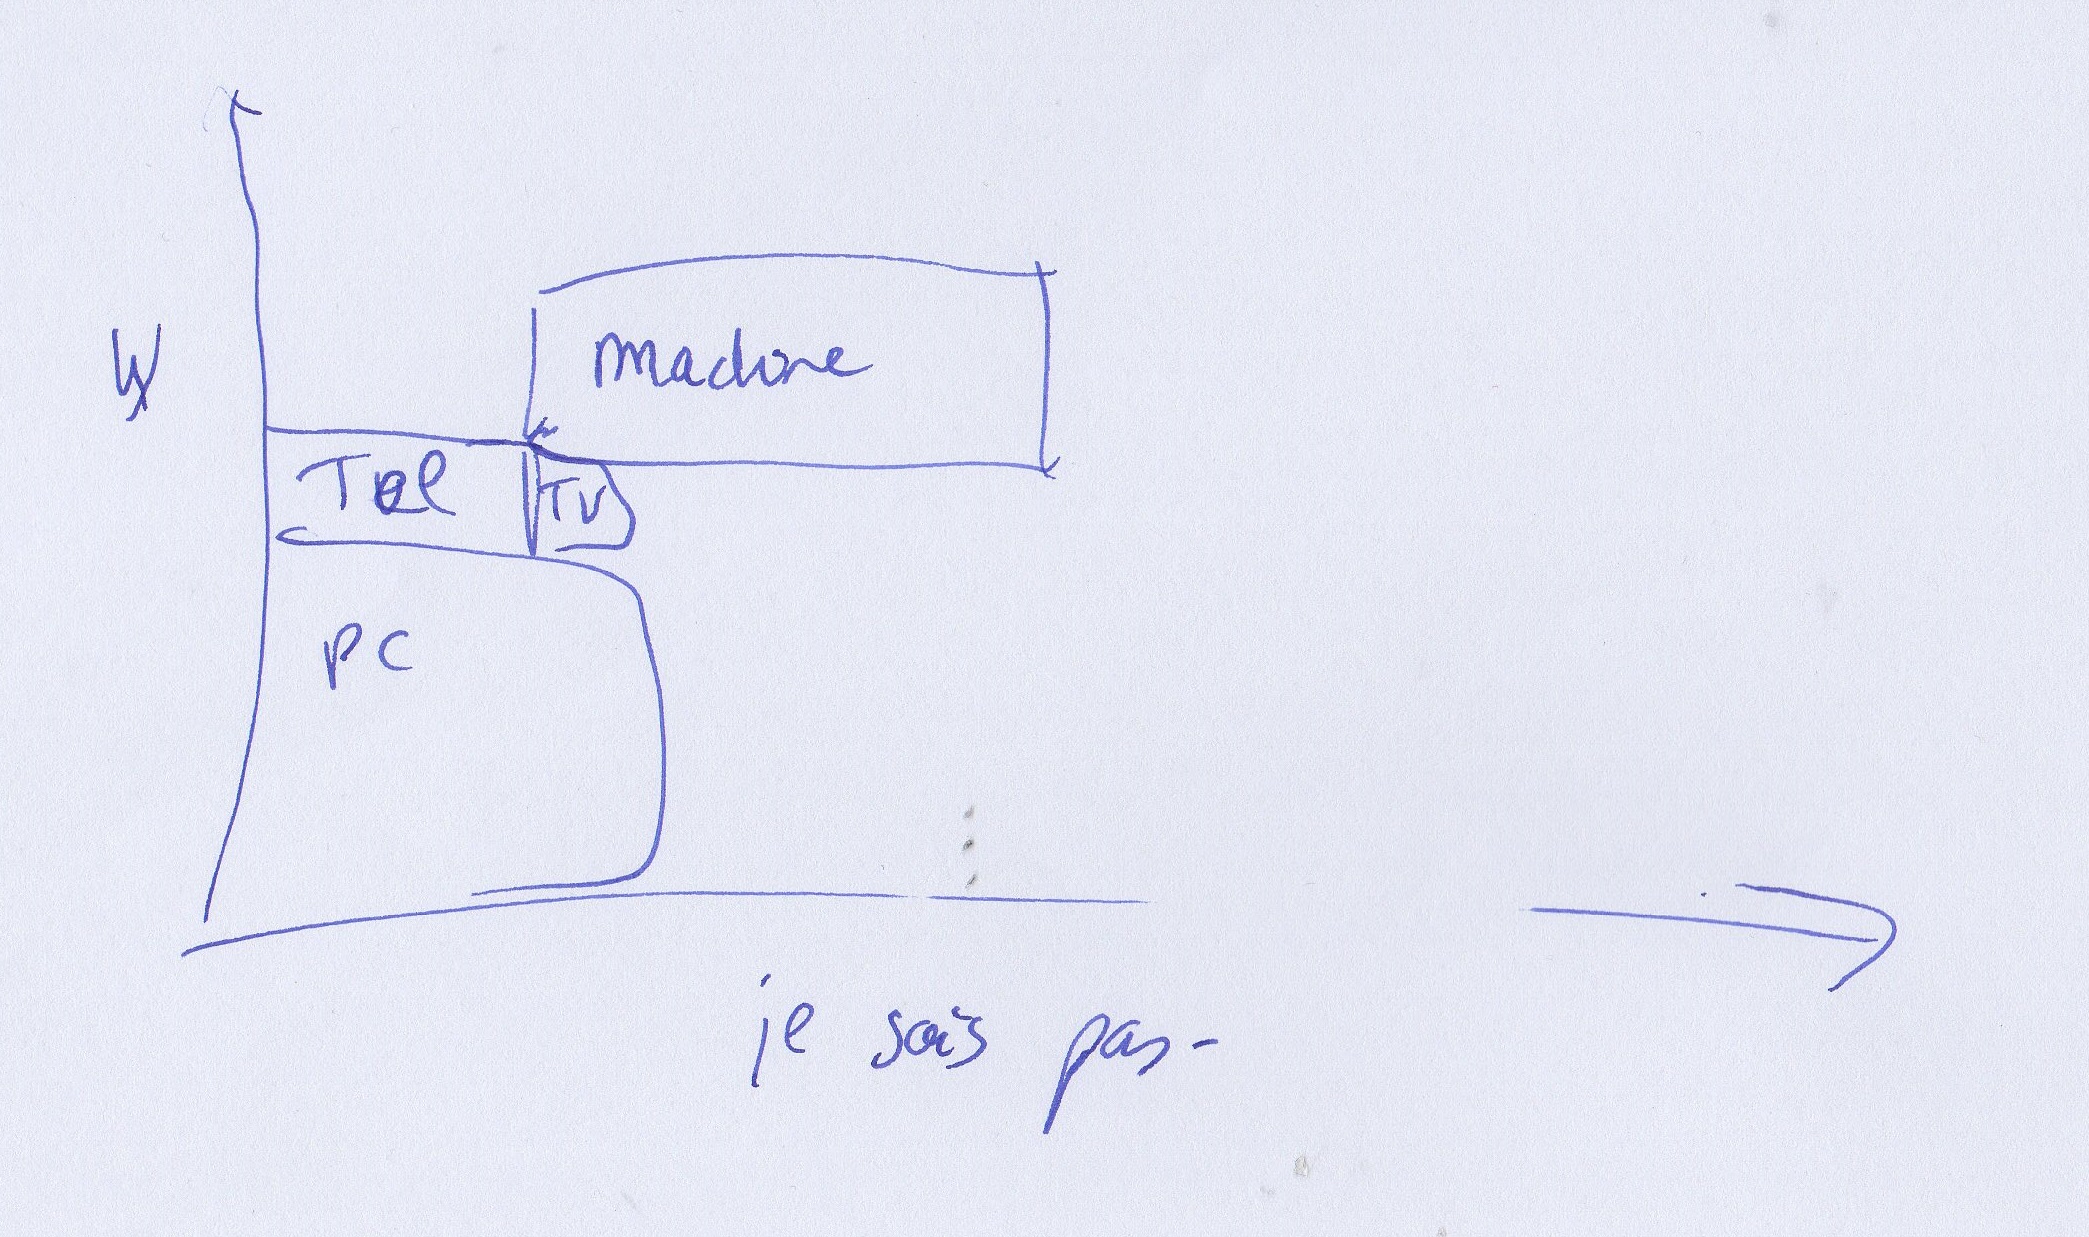 W
Machine
Tel
TV
PC
je sais pas-